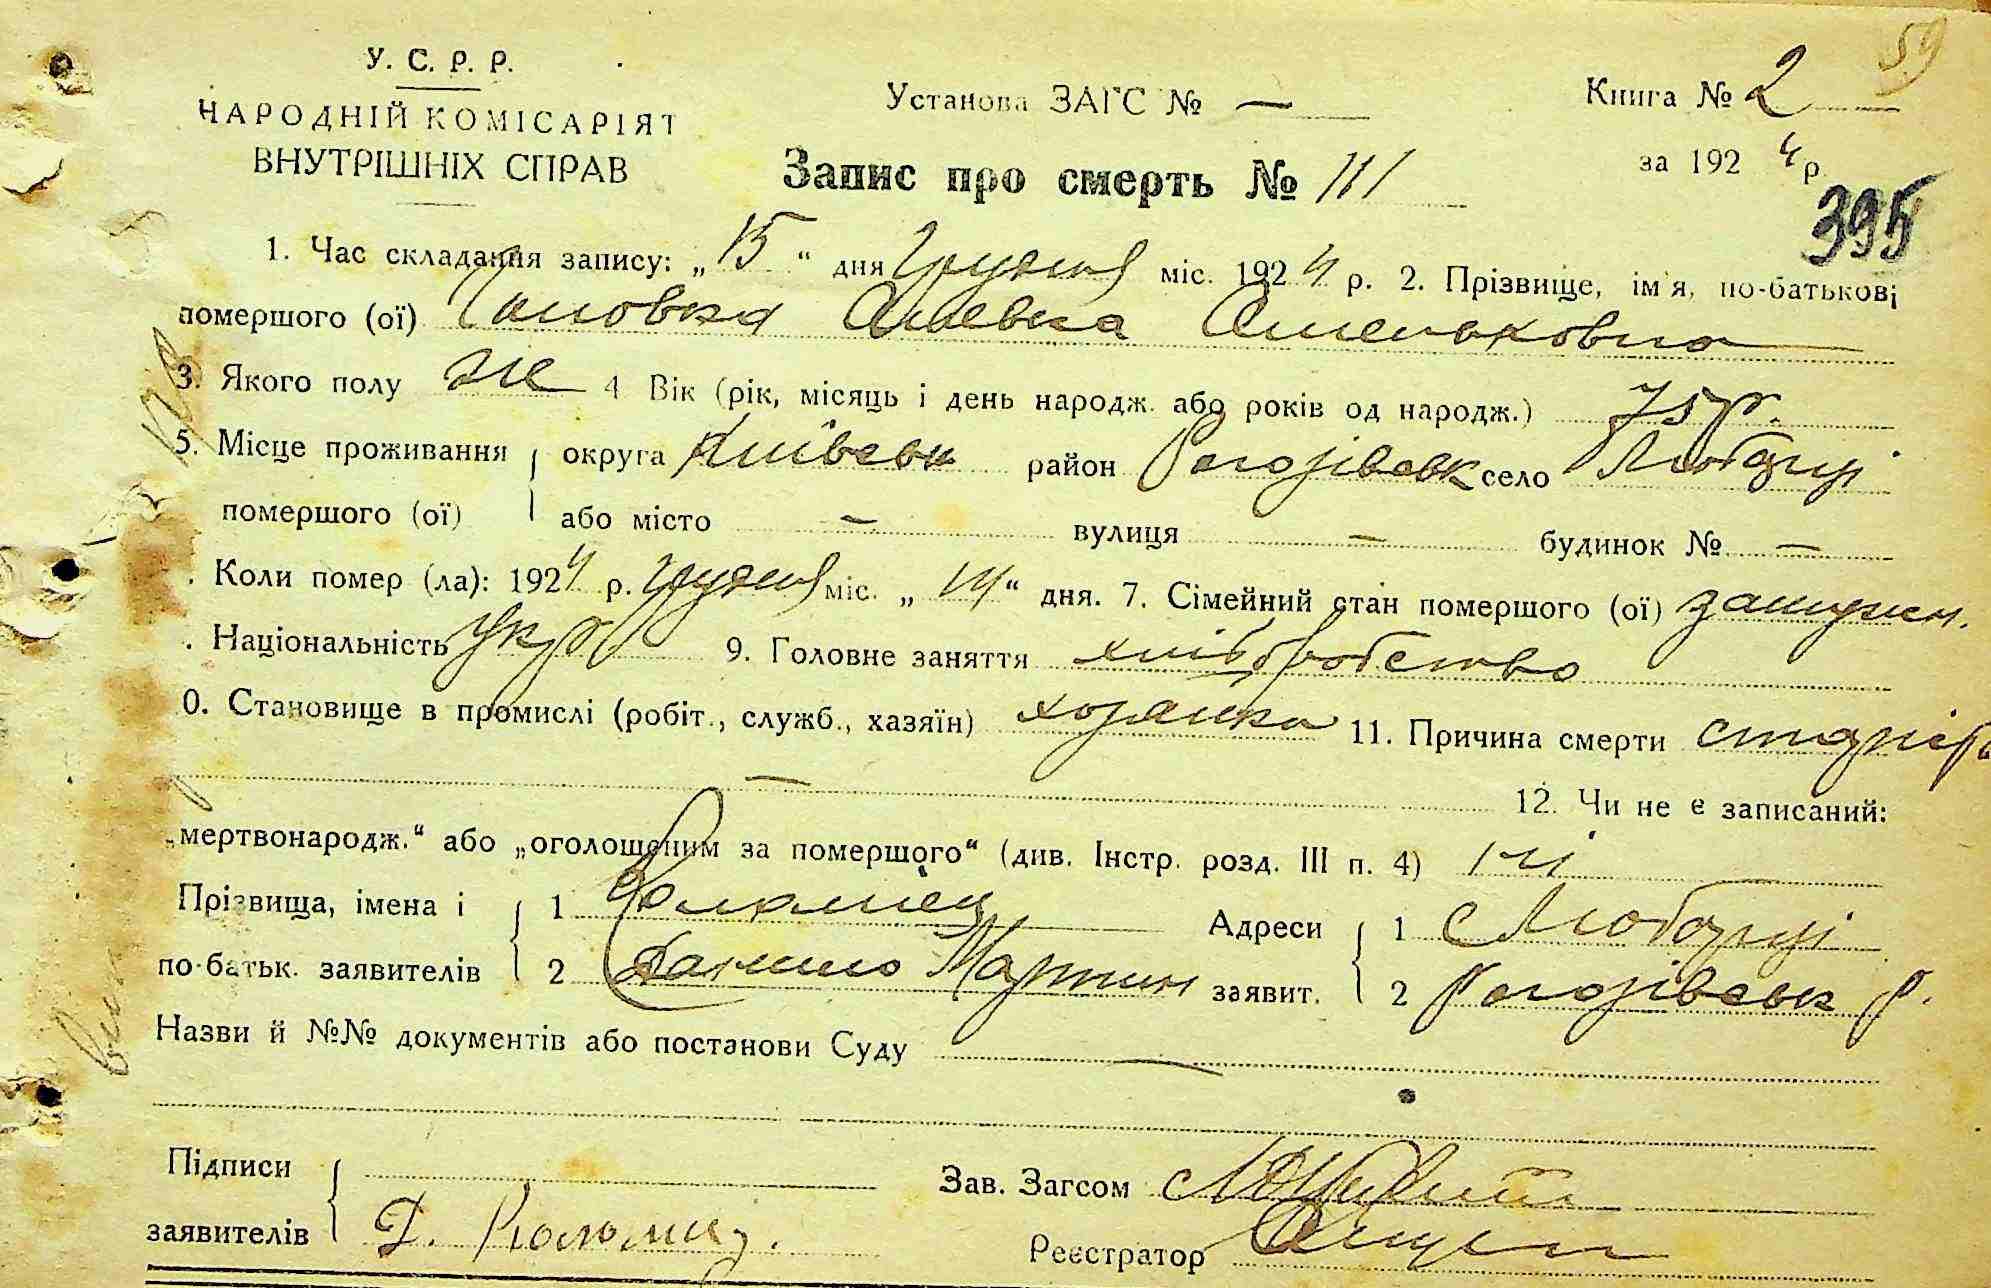 59
У. С. Р. Р.
НАРОДНІЙ КОМІСАРІЯТ
ВНУТРІШНІХ СПРАВ
Установа ЗАГС № —
Книга № 2
за 1924 р.
Запис про смерть № 111
395
1. Час складання запису: „15“ дня Грудня міс. 1924 р. 2. Прізвище, ім'я, по-батькові
помершого (ої)
3. Якого полу же 4 Вік (рік, місяць і день народж. або років од народж.) 75 р.
5. Місце проживання округа Київськ район Рогозівськ село Любарці
помершого (ої) або місто — вулиця — будинок № —
. Коли помер (ла): 1924 р. Грудня міс. „14“ дня. 7. Сімейний стан помершого (ої) замужем.
. Національність Укр 9. Головне заняття хліборобство
0. Становище в промислі (робіт., служб., хазяїн) хозяйка 11. Причина смерти старість
— 12. Чи не є записаний:
„мертвонародж.“ або „оголошеним за помершого“ (див. Інстр. розд. III п. 4) ні
Прізвища, імена і 1 Коломієць Адреси 1 с Любарці
по-батьк. заявителів 2 Данило Мартин заявит. 2 Рогозівськ р.
Назви й №№ документів або постанови Суду —
Підписи
Зав. Загсом
заявителів Д. Коломиец.
Реєстратор